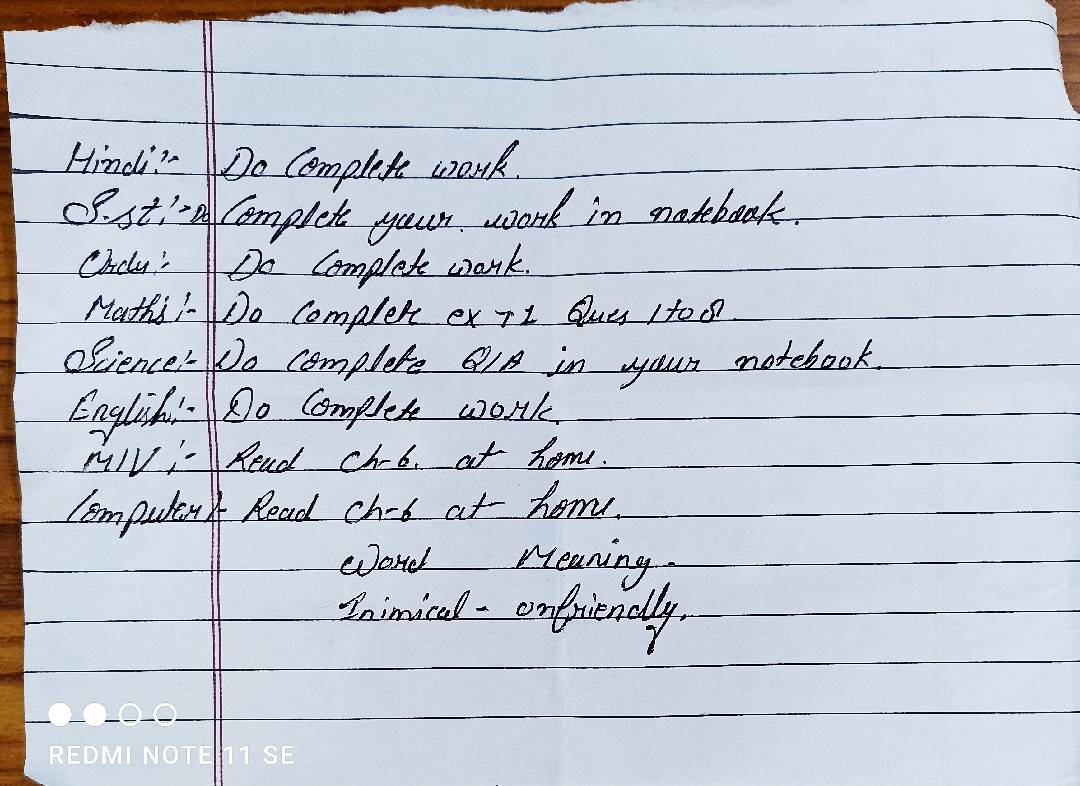 Hindi:- Do Complete work.
S.st:- Do Complete your work in notebook.
Urdu:- Do Complete work.
Maths:- Do Complete ex 7.1 Ques 1 to 8.
Science:- Do Complete Q/A in your notebook.
English:- Do Complete work.
MIV:- Read Ch-6. at home.
Computer:- Read Ch-6 at home.
Word Meaning.
Inimical - unfriendly.
REDMI NOTE 11 SE